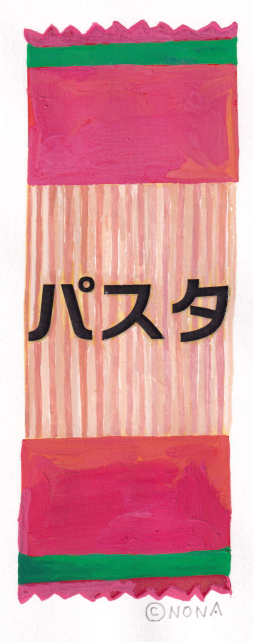 パスタ
©NONA